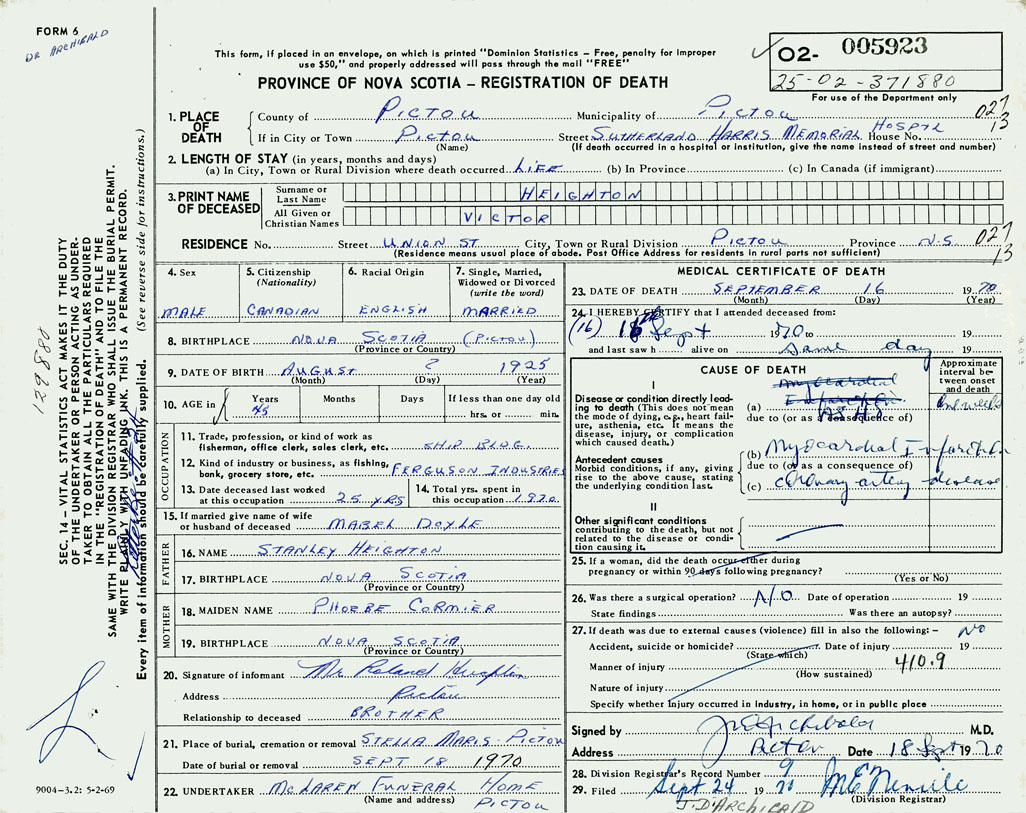 FORM 6
DR ARCHIBALD
This form, if placed in an envelope, on which is printed "Dominion Statistics – Free, penalty for improper
use $50," and properly addressed will pass through the mail "FREE"
PROVINCE OF NOVA SCOTIA – REGISTRATION OF DEATH
O2- 005923
25-02-371880
For use of the Department only
1. PLACE OF DEATH
County of PICTOU Municipality of PICTOU 027
If in City or Town PICTOU Street SUTHERLAND HARRIS MEMORIAL HOSPTL House No. 13
(Name) (If death occurred in a hospital or institution, give the name instead of street and number)
2. LENGTH OF STAY (in years, months and days)
(a) In City, Town or Rural Division where death occurred LIFE (b) In Province (c) In Canada (if immigrant)
3. PRINT NAME OF DECEASED
Surname or Last Name HEIGHTON
All Given or Christian Names VICTOR
RESIDENCE No. Street UNION ST City, Town or Rural Division PICTOU Province N.S 027
(Residence means usual place of abode. Post Office Address for residents in rural parts not sufficient) 13
4. Sex MALE
5. Citizenship (Nationality) CANADIAN
6. Racial Origin ENGLISH
7. Single, Married, Widowed or Divorced (write the word) MARRIED
8. BIRTHPLACE NOVA SCOTIA (PICTOU)
(Province or Country)
9. DATE OF BIRTH AUGUST ? 1925
(Month) (Day) (Year)
10. AGE in Years 45 Months Days If less than one day old
hrs. or min.
OCCUPATION
11. Trade, profession, or kind of work as
fisherman, office clerk, sales clerk, etc. SHIP BLDG.
12. Kind of industry or business, as fishing,
bank, grocery store, etc. FERGUSON INDUSTRIES
13. Date deceased last worked
at this occupation 25 YRS
14. Total yrs. spent in
this occupation 1970
15. If married give name of wife
or husband of deceased MABEL DOYLE
FATHER
16. NAME STANLEY HEIGHTON
17. BIRTHPLACE NOVA SCOTIA
(Province or Country)
MOTHER
18. MAIDEN NAME PHOEBE CORMIER
19. BIRTHPLACE NOVA SCOTIA
(Province or Country)
20. Signature of informant Mr Roland
Address Pictou
Relationship to deceased BROTHER
21. Place of burial, cremation or removal STELLA MARIS - PICTOU
Date of burial or removal SEPT 18 1970
22. UNDERTAKER MCLAREN FUNERAL HOME
(Name and address) PICTOU
MEDICAL CERTIFICATE OF DEATH
23. DATE OF DEATH SEPTEMBER 16 1970
(Month) (Day) (Year)
24. I HEREBY CERTIFY that I attended deceased from:
(16) 16th Sept 1970 to 19
and last saw h alive on same day 19
CAUSE OF DEATH
Approximate interval between onset and death
I
Disease or condition directly leading to death (This does not mean the mode of dying, e.g., heart failure, asthenia, etc. It means the disease, injury, or complication which caused death.)
myocardial
(a) Infarction ASHD
due to (or as a consequence of)
Antecedent causes
Morbid conditions, if any, giving rise to the above cause, stating the underlying condition last.
(b) Myocardial Infarction
due to (or as a consequence of)
(c) coronary artery disease
II
Other significant conditions
contributing to the death, but not related to the disease or condition causing it.
25. If a woman, did the death occur either during
pregnancy or within 90 days following pregnancy?
(Yes or No)
26. Was there a surgical operation? NO Date of operation 19
State findings Was there an autopsy?
27. If death was due to external causes (violence) fill in also the following:– NO
Accident, suicide or homicide? Date of injury 19
(State which)
Manner of injury 410.9
(How sustained)
Nature of injury
Specify whether Injury occurred in Industry, in home, or in public place
Signed by J D Archibald M.D.
Address Pictou Date 18 Sept 1970
28. Division Registrar's Record Number 9
29. Filed Sept 24 1970
(Division Registrar)
J. D'ARCHIBALD
SEC. 14 – VITAL STATISTICS ACT MAKES IT THE DUTY
OF THE UNDERTAKER OR PERSON ACTING AS UNDER-
TAKER TO OBTAIN ALL THE PARTICULARS REQUIRED
IN THE "REGISTRATION OF DEATH" AND TO FILE THE
SAME WITH THE DIVISION REGISTRAR WHO SHALL ISSUE THE BURIAL PERMIT.
WRITE PLAINLY WITH UNFADING INK. THIS IS A PERMANENT RECORD.
Every item of information should be carefully supplied. (See reverse side for instructions.)
129880
9004-3.2: 5-2-69